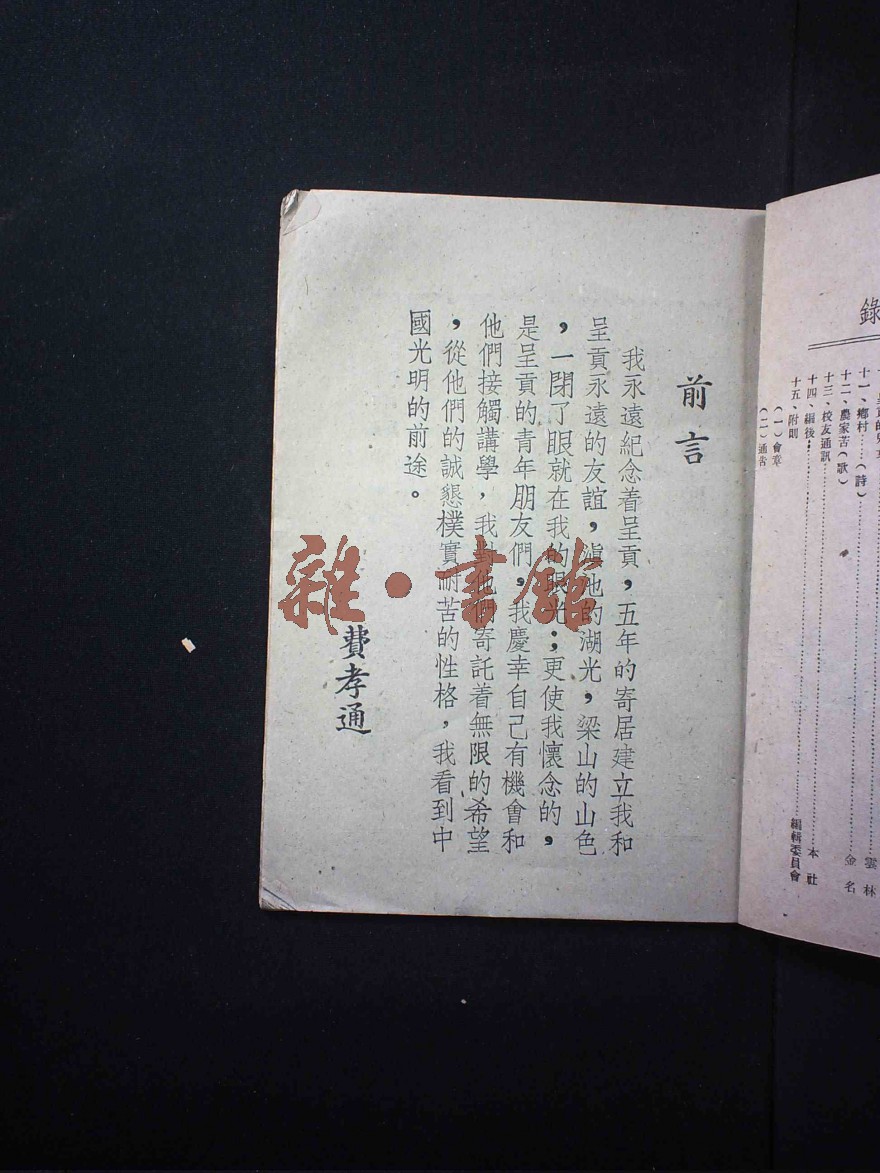 錄
十一、鄉村……(詩)………雲林
十二、農家苦(歌)………金名
十三、校友通訊
十四、編後………本社
十五、附則………編輯委員會
(一)會章
(二)通告
前言
我永遠紀念着呈貢,五年的寄居建立我和
呈貢永遠的友誼,滇池的湖光,梁山的山色
,一閉了眼就在我的眼光;更使我懷念的,
是呈貢的青年朋友們,我慶幸自己有機會和
他們接觸講學,我對他們寄託着無限的希望
,從他們的誠懇樸實耐苦的性格,我看到中
國光明的前途。
費孝通
雜·書館